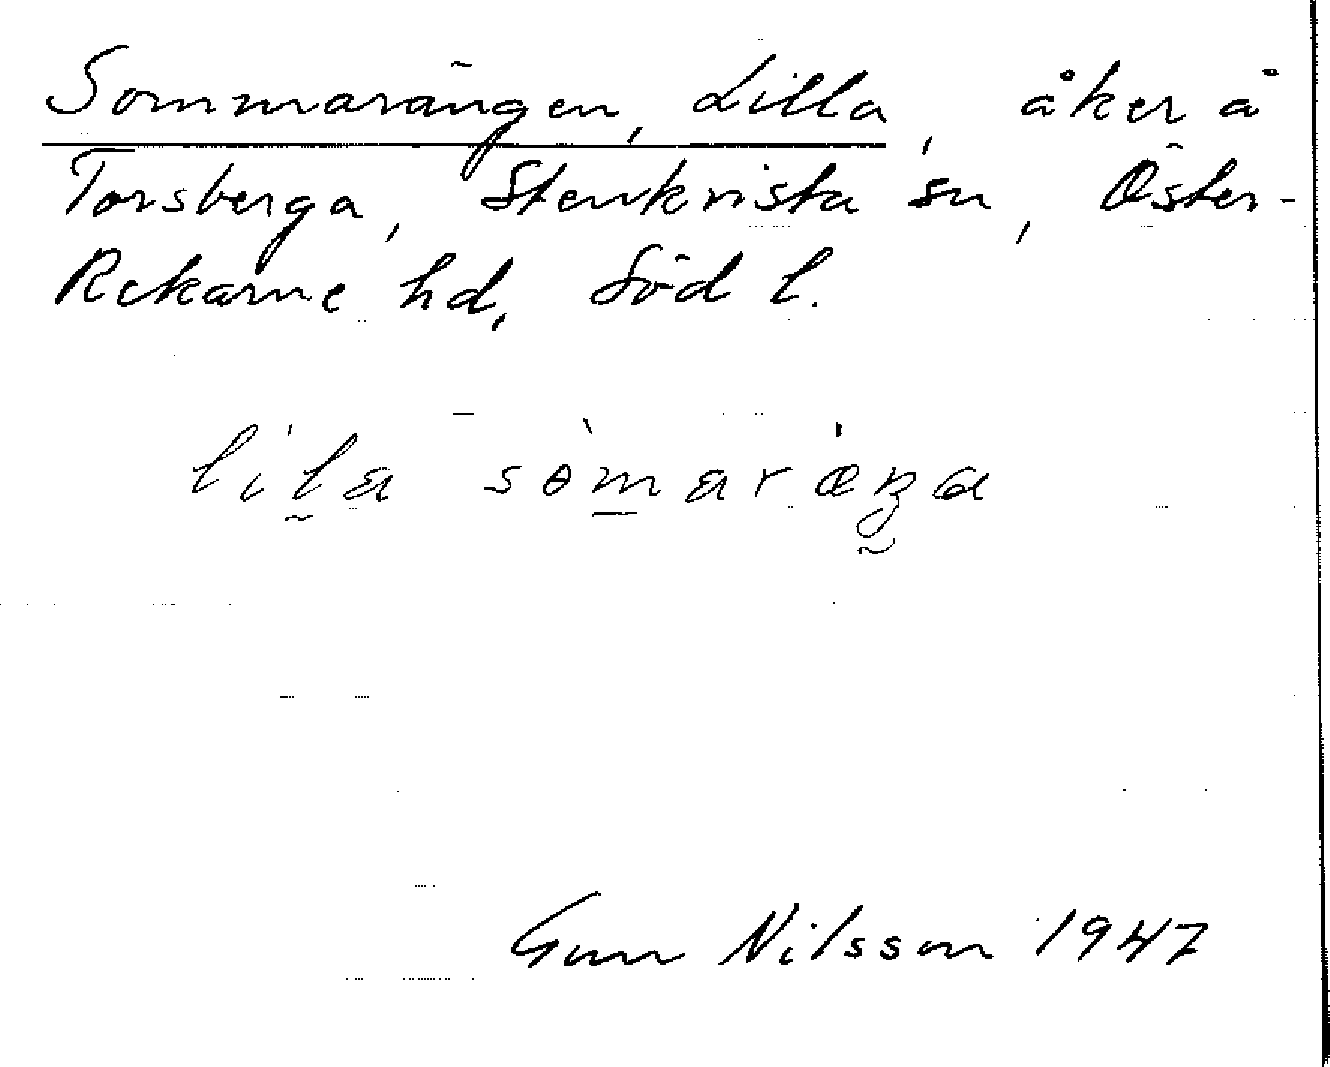 Sommarängen, Lilla, åker å
Torsberga, Stenkvista sn, Öster-
Rekarne hd, Söd l.
lila sòmaræŋa
Gun Nilsson 1947